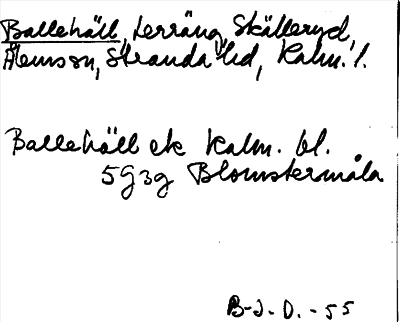 Ballehäll, terräng, Skälleryd,
Ålemsson, Stranda hd, Kalm. l.
Ballehäll ek Kalm. bl.
5G3g Blomstermåla
B-J.D.-55